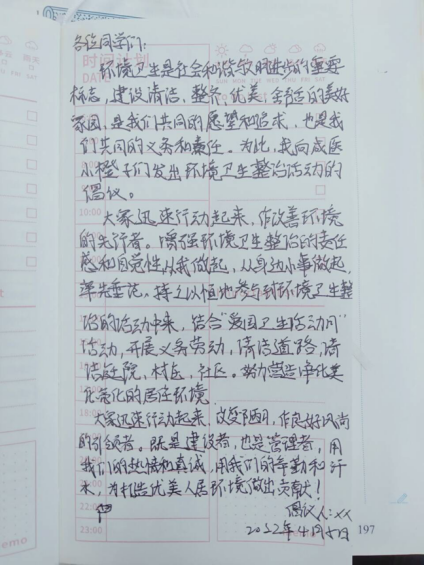 各位同学们:
时间计划
DATE
环境卫生是社会和谐文明进步的重要
标志，建设清洁、整齐、优美、舒适的美好
家园，是我们共同的愿望和追求，也是我
们共同的义务和责任。为此，我向成医
小橙子们发出环境卫生整治活动的
倡议。
10:00
大家迅速行动起来，作改善环境
的先行者。增强环境卫生整治的责任
感和自觉性从我做起，从身边小事做起，
率先垂范。持之以恒地参与到环境卫生整
治的活动中来，结合“爱国卫生活动月”
活动，开展义务劳动，清洁道路，清
洁庭院、村区、社区。努力营造净化美
化亮化的居住环境.
大家迅速行动起来，改变陋习，作良好风尚
的引领者。既是建设者，也是管理者，用
我们的热情和真诚，用我们的辛勤和汗
水，为打造优美人居环境做出贡献！
22:00
倡议人:xx
23:00
2022年4月5日
197